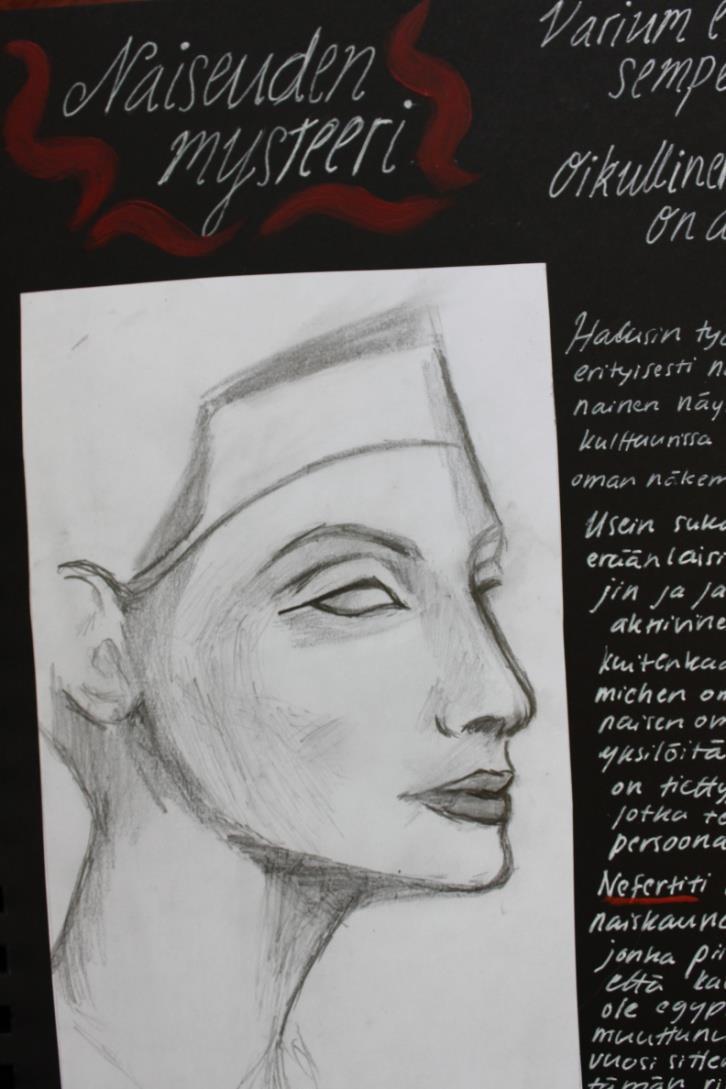 Naiseuden
mysteeri
Varium e
sempe
Oikulline
on a
Halusin ty
erityisesti n
nainen näy
kulttuurissa
oman näkem
Usein suku
eräänlaisi
jin ja ja
aktiivine
kuitenkaa
miehen om
naisen om
yksilöitä
on tietty
jotka te
persoona
Nefertiti
naiskaune
jonka pii
että ka
ole egyp
muuttunu
vuosi sitten